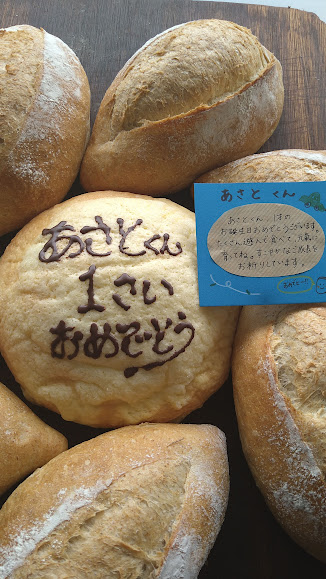 あさとくん
1さい
おめでとう
あさと くん
あさとくん、1才の
お誕生日おめでとうございます。
たくさん遊んで食べて、元気に
育ってね。すこやかなご成長を
お祈りしています。